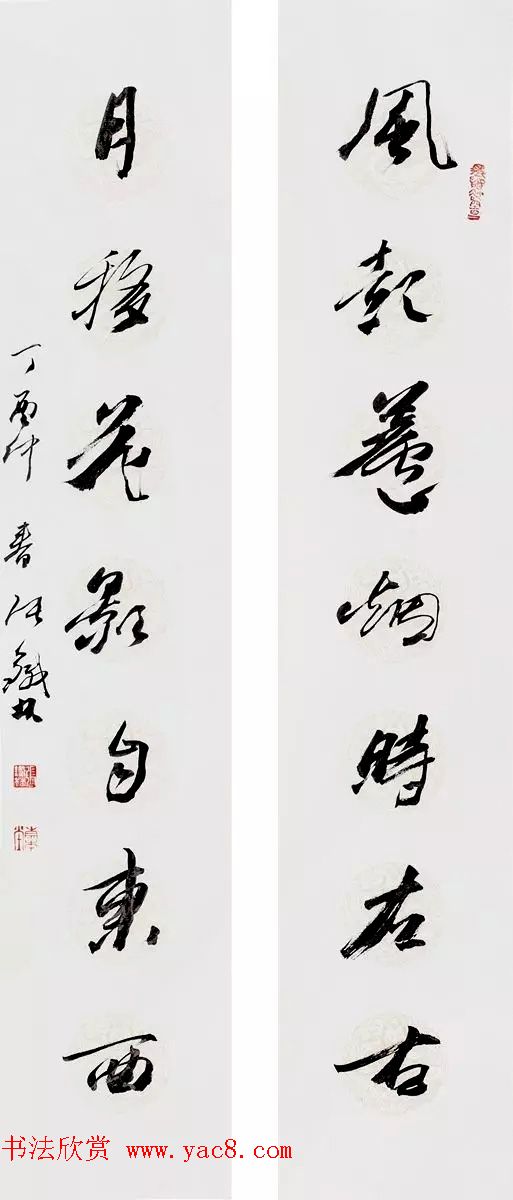 風烟時左右
月移花影自東西
丁酉仲春張鐵林
书法欣赏 www.yac8.com